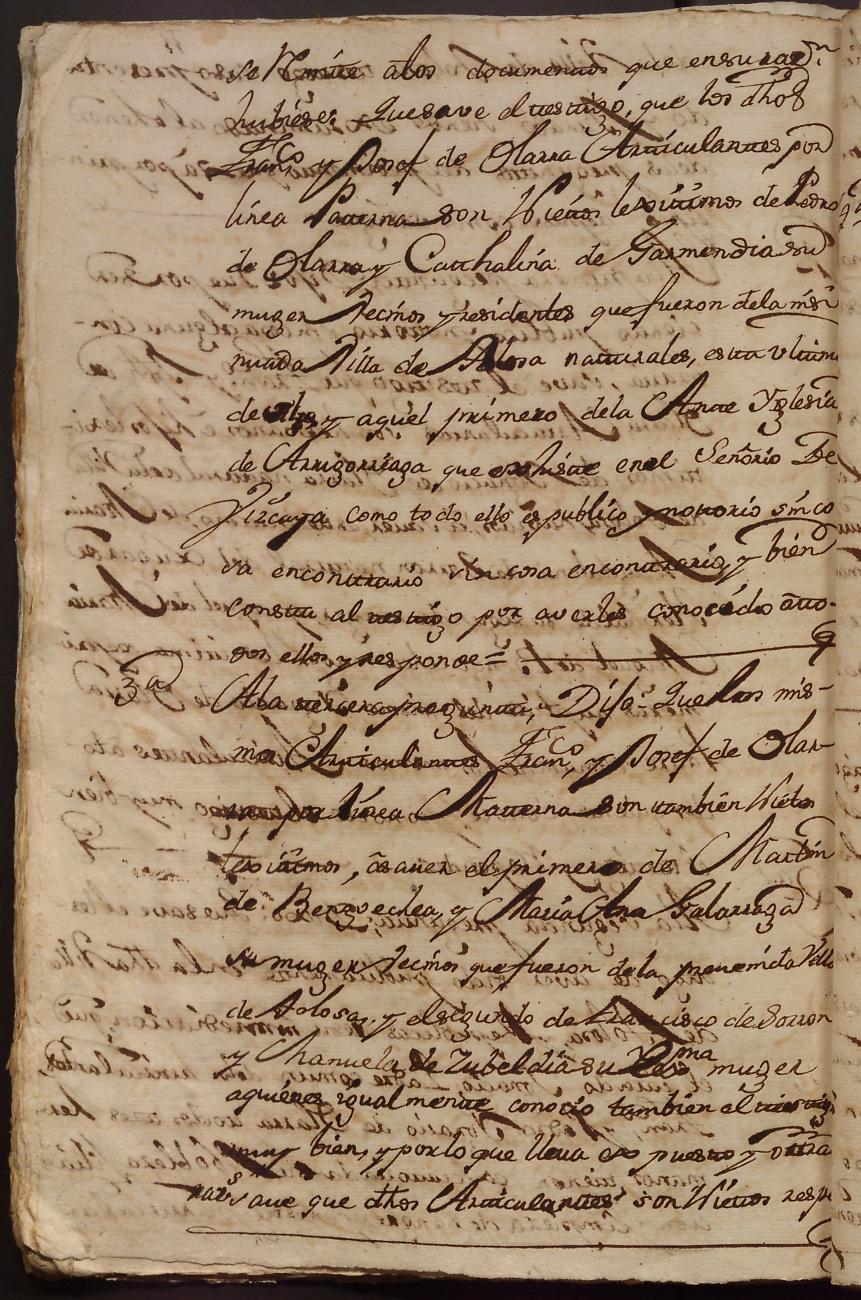 se Remite a los documentos que en su raz.n
hubiese: Que save el testigo, que los dhos
Fran.co y Josef de Olarra Articulantes por
linea Paterna son Nietos lexitimos de Pedro
de Olarra y Catthalina de Garmendia su
muger Vecinos y residentes que fueron de la insi
nuada Villa de Tolosa naturales, esta ultima
de ella, y aquel primero de la Ante Yglesia
de Arrigorriaga que existe en el Señorio De
Vizcaya como todo ello es publico y nottorio sin co
sa en conttrario sin cosa enconttrario, y bien
consta al testigo por averles conocido a tto-
dos ellos y responde =
3.a A la tercera pregunta, Dijo: Que los mis-
mos Articulantes Fran.co, y Josef de Olar-
ra por linea Matterna son tambien Nietos
lexitimos, a saver el primero de Martin
de Berrovechea, y Maria Ana Galarraga
su muger Vecinos que fueron de la prevenida Villa
de Tolosa, y el segundo de Francisco de Sorron
y Manuela de Zubeldia su muger
a quienes igualmente conocio tambien el testigo
muy bien, y por lo que lleva expuesto y ottra
save que dhos Articulantes son Nietos resp